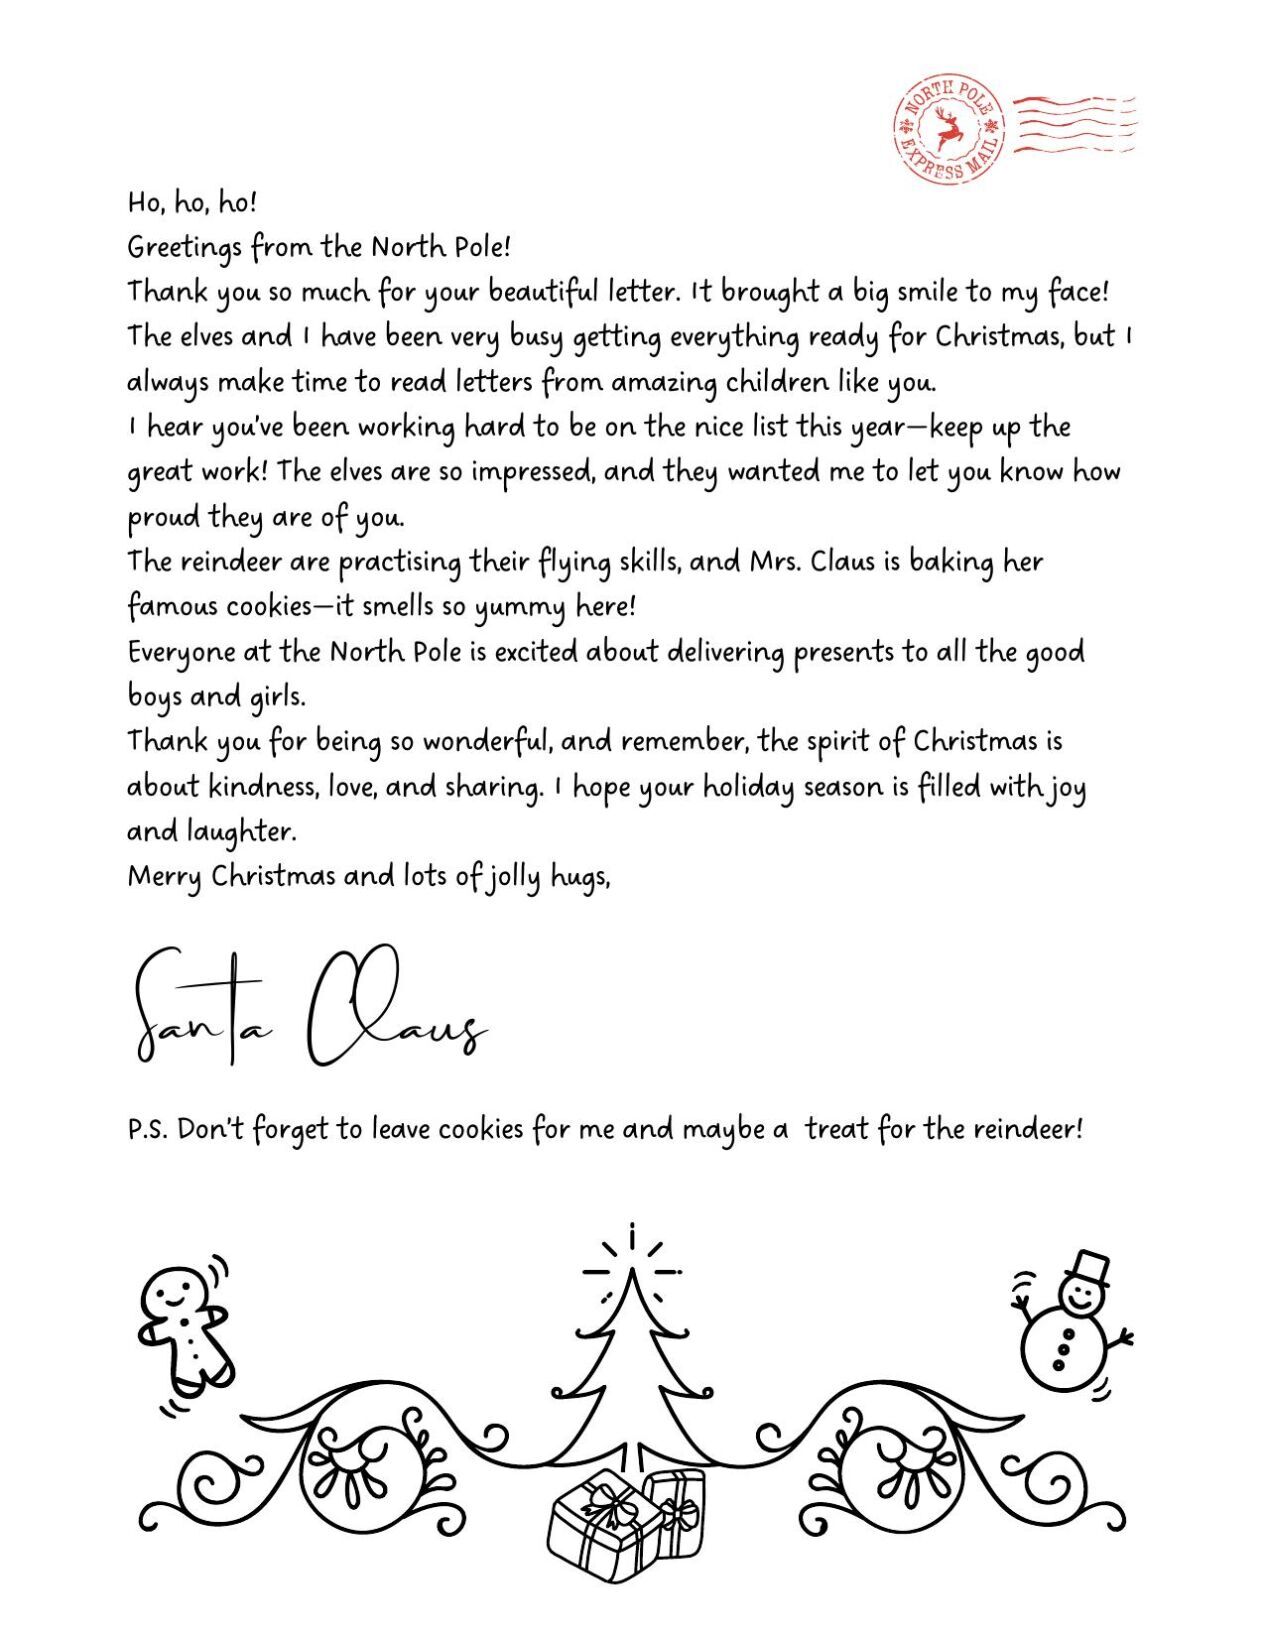 NORTH POLE
EXPRESS MAIL
Ho, ho, ho!
Greetings from the North Pole!
Thank you so much for your beautiful letter. It brought a big smile to my face!
The elves and I have been very busy getting everything ready for Christmas, but I
always make time to read letters from amazing children like you.
I hear you've been working hard to be on the nice list this year—keep up the
great work! The elves are so impressed, and they wanted me to let you know how
proud they are of you.
The reindeer are practising their flying skills, and Mrs. Claus is baking her
famous cookies—it smells so yummy here!
Everyone at the North Pole is excited about delivering presents to all the good
boys and girls.
Thank you for being so wonderful, and remember, the spirit of Christmas is
about kindness, love, and sharing. I hope your holiday season is filled with joy
and laughter.
Merry Christmas and lots of jolly hugs,
Santa Claus
P.S. Don't forget to leave cookies for me and maybe a  treat for the reindeer!